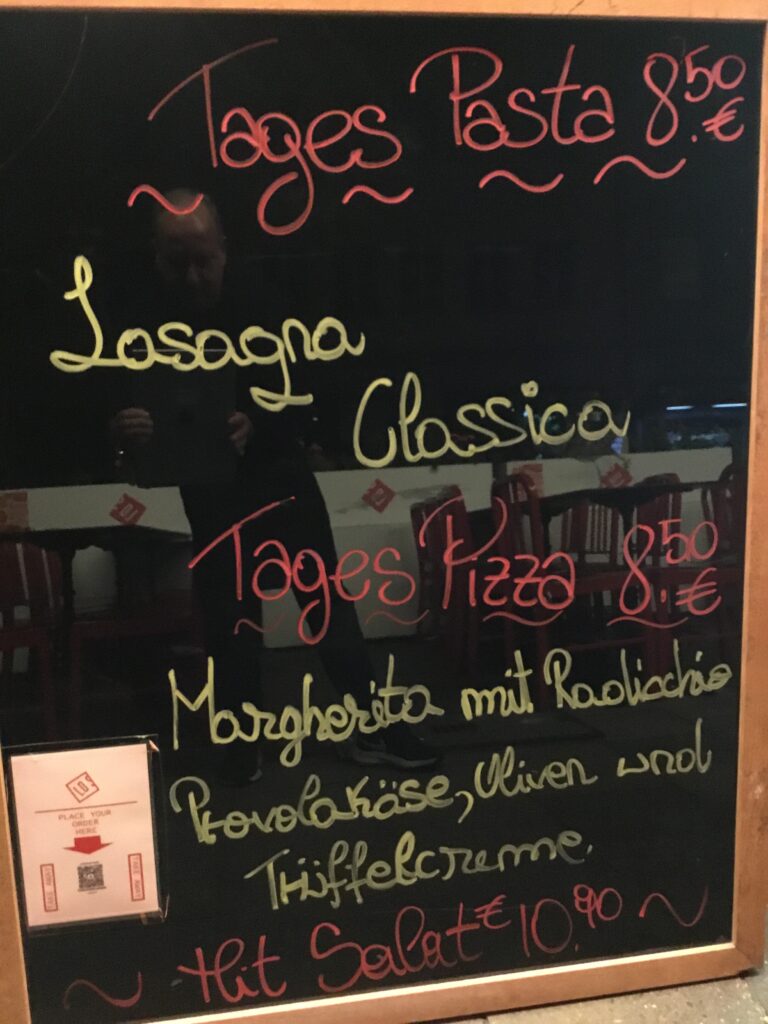 Tages Pasta 8.50 €
Lasagna
Classica
Tages Pizza 8.50 €
Margherita mit Radicchio
Provolakäse, Oliven und
Trüffelcreme.
Mit Salat € 10.90
PLACE YOUR
ORDER
HERE